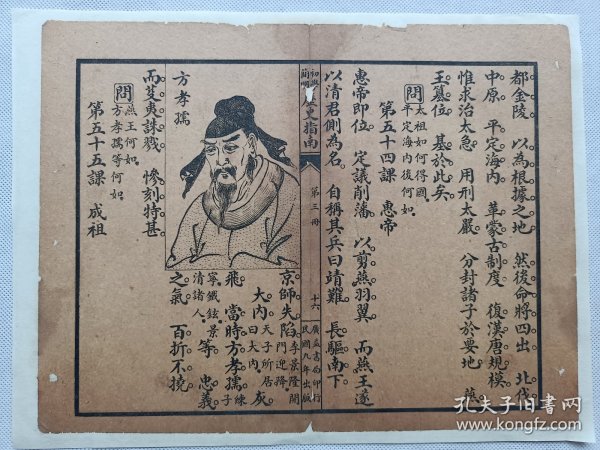 都金陵　以為根據之地　然後命將四出　北伐
中原　平定海內　革蒙古制度　復漢唐規模
惟求治太急　用刑太嚴　分封諸子於要地　燕
王篡位　基於此矣
問 太祖如何得國
平定海內後何如
第五十四課　惠帝
惠帝即位　定議削藩　以剪燕羽翼　而燕王遂
以清君側為名　自稱其兵曰靖難　長驅南下
歷史指南
第三冊
十六
廣益書局印行
民國九年出版
京師失陷 李景隆開
門迎降
大內 天子所居
曰大內 灰
飛　當時方孝孺 練子
寧鐵鉉景
清諸人 等　忠義
之氣　百折不撓
方孝孺
而芟夷誅戮　慘刻特甚
問 燕王何如
方孝孺等何如
第五十五課　成祖
孔夫子旧书网
www.kongfz.com